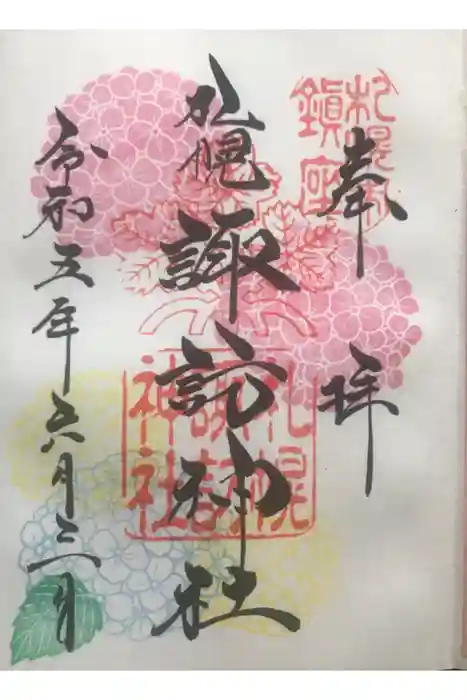 奉拝
札幌村
鎮座
札幌諏訪神社
札幌
諏訪
神社
令和五年六月三日